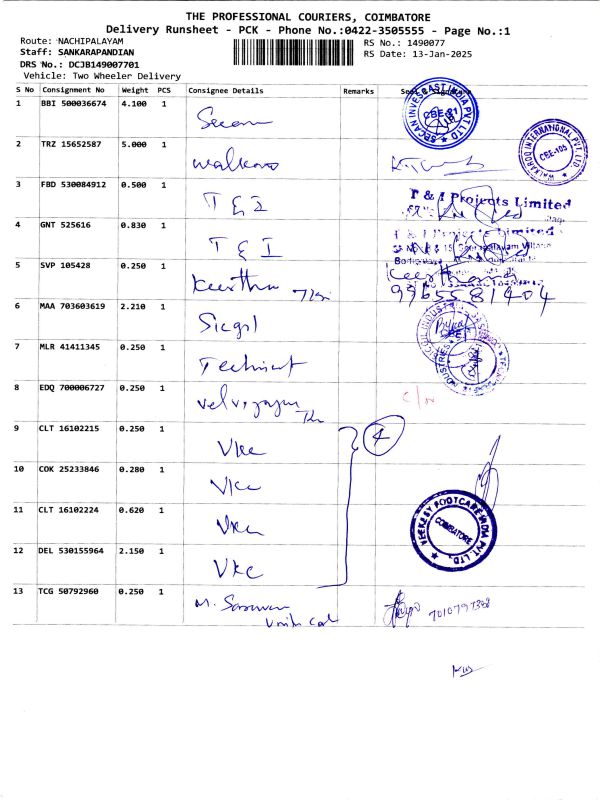 THE PROFESSIONAL COURIERS, COIMBATORE
Delivery Runsheet - PCK - Phone No.:0422-3505555 - Page No.:1
Route: NACHIPALAYAM
RS No.: 1490077
Staff: SANKARAPANDIAN
RS Date: 13-Jan-2025
DRS No.: DCJB149007701
Vehicle: Two Wheeler Delivery
S No Consignment No Weight PCS Consignee Details Remarks
1 BBI 500036674 4.100 1
CBE-81
2 TRZ 15652587 5.000 1 Walkaroo
WALKAROO INTERNATIONAL PVT. LTD.
CBE-105
3 FBD 530084912 0.500 1 T & I
T & I Projects Limited
4 GNT 525616 0.830 1 T & I
T & I Projects Limited
5 SVP 105428 0.250 1 Keerthi
Keerthana
9965581404
6 MAA 703603619 2.210 1 Sicgil
7 MLR 41411345 0.250 1
8 EDQ 700006727 0.250 1 Velvizayan
9 CLT 16102215 0.250 1 Vkc
4
10 COK 25233846 0.280 1 Vkc
11 CLT 16102224 0.620 1 Vkc
VEEKESY FOOTCARE INDIA PVT. LTD.
COIMBATORE
12 DEL 530155964 2.150 1 Vkc
13 TCG 50792960 0.250 1 M. Saravanan